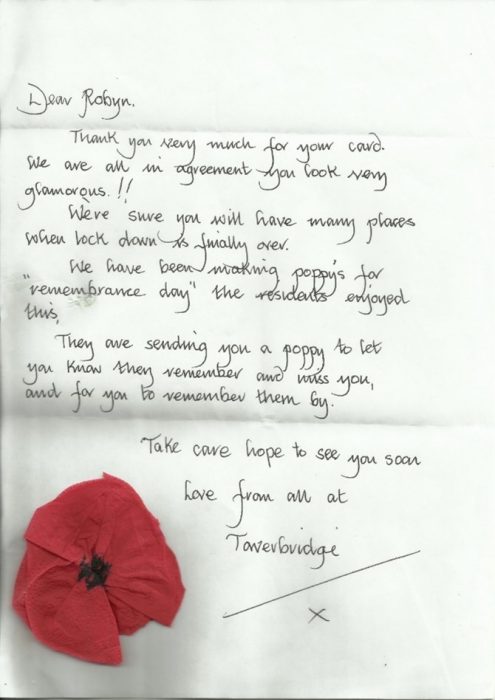 Dear Robyn.
Thank you very much for your card.
We are all in agreement you look very
glamorous. !!
We're sure you will have many places
when lock down is finially over.
We have been making poppy's for
"remembrance day" the residents enjoyed
this,
They are sending you a poppy to let
you know they remember and miss you,
and for you to remember them by.
Take care hope to see you soon
Love from all at
Towerbridge
x